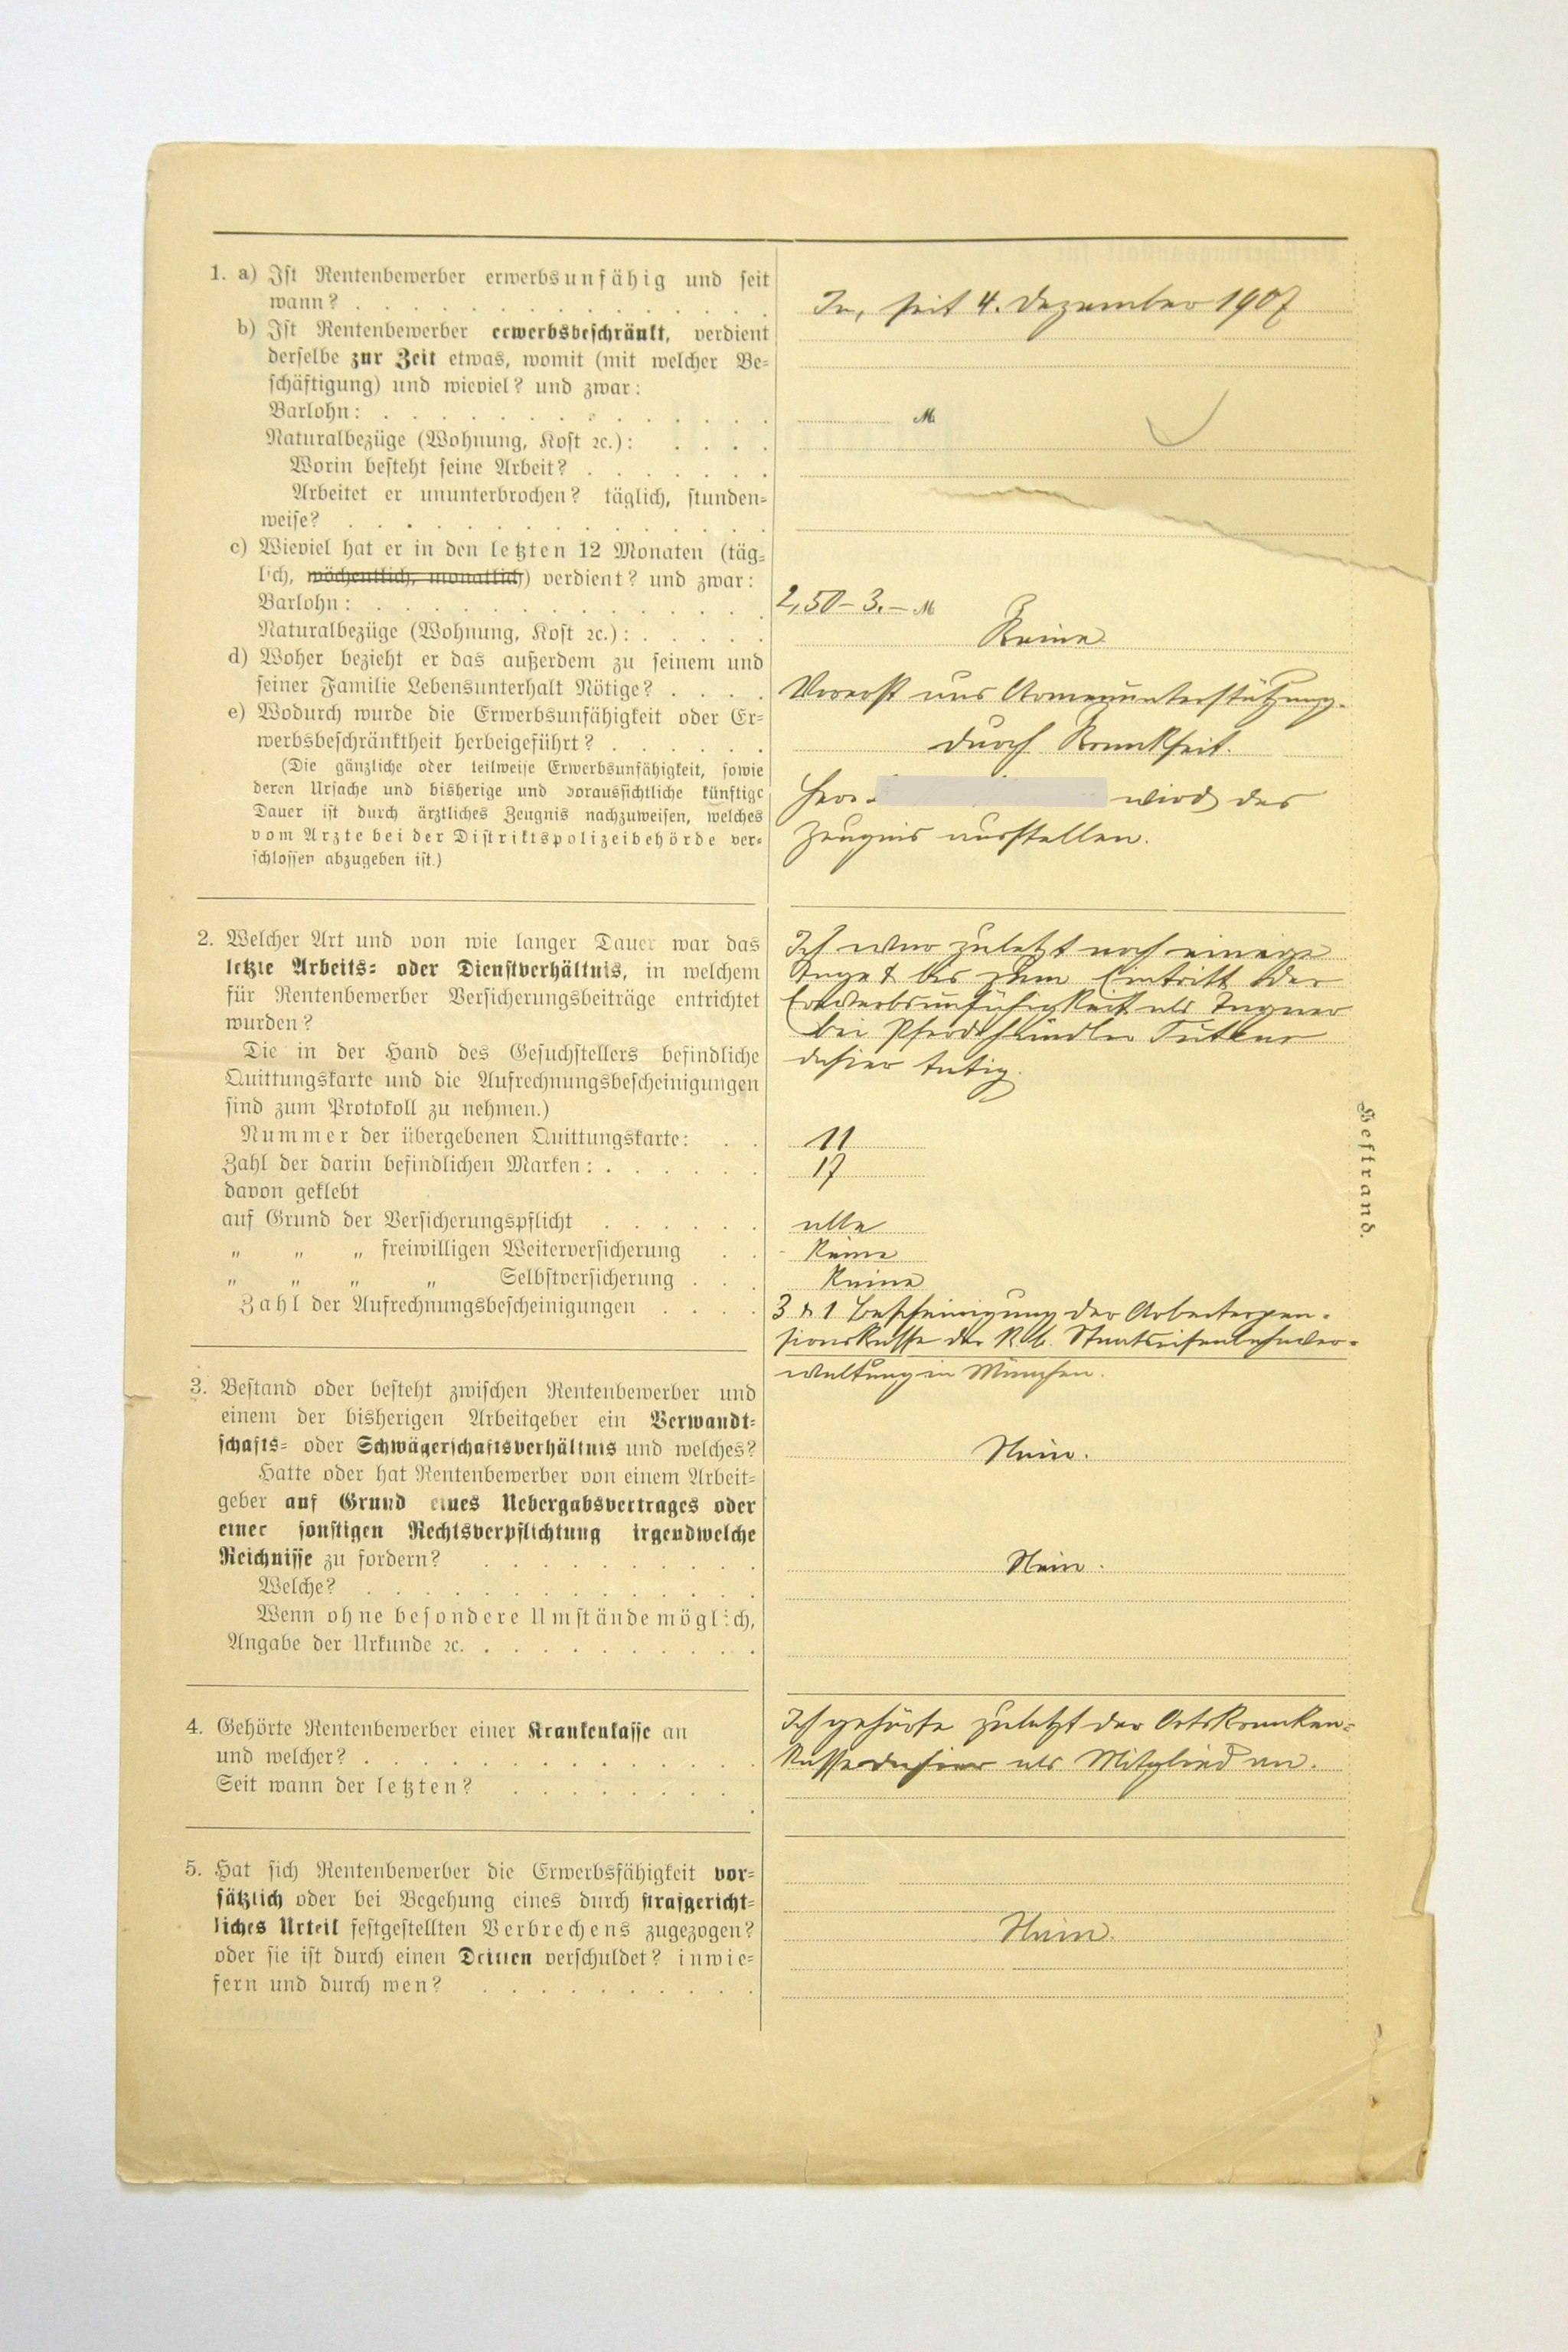 1. a) Ist Rentenbewerber erwerbsunfähig und seit
wann? . . . . . . . . . . . . . .
Ja, seit 4. Dezember 1907
b) Ist Rentenbewerber erwerbsbeschränkt, verdient
derselbe zur Zeit etwas, womit (mit welcher Be=
schäftigung) und wieviel? und zwar:
Barlohn: . . . . . . . . . . . . . .
M.
Naturalbezüge (Wohnung, Kost ꝛc.): . . . .
Worin besteht seine Arbeit? . . . . . . .
Arbeitet er ununterbrochen? täglich, stunden=
weise? . . . . . . . . . . . . . . .
c) Wieviel hat er in den letzten 12 Monaten (täg=
lich, wöchentlich, monatlich) verdient? und zwar:
Barlohn: . . . . . . . . . . . . . .
2,50 – 3.– M
Naturalbezüge (Wohnung, Kost ꝛc.): . . . . .
Keine
d) Woher bezieht er das außerdem zu seinem und
seiner Familie Lebensunterhalt Nötige? . . . .
Vorerst aus Armenunterstützung.
e) Wodurch wurde die Erwerbsunfähigkeit oder Er=
werbsbeschränktheit herbeigeführt? . . . . . .
durch Krankheit.
(Die gänzliche oder teilweise Erwerbsunfähigkeit, sowie
deren Ursache und bisherige und voraussichtliche künftige
Dauer ist durch ärztliches Zeugnis nachzuweisen, welches
vom Arzte bei der Distriktspolizeibehörde ver=
schlossen abzugeben ist.)
Herr wird das
Zeugnis ausstellen.
2. Welcher Art und von wie langer Dauer war das
letzte Arbeits= oder Dienstverhältnis, in welchem
für Rentenbewerber Versicherungsbeiträge entrichtet
wurden?
Die in der Hand des Gesuchstellers befindliche
Quittungskarte und die Aufrechnungsbescheinigungen
sind zum Protokoll zu nehmen.)
Ich war zuletzt noch einige
Tage bis zum Eintritt der
Erwerbsunfähigkeit als
bei Pferdehändler
dahier tätig.
Nummer der übergebenen Quittungskarte: . .
11
Zahl der darin befindlichen Marken: . . . . . .
17
davon geklebt
auf Grund der Versicherungspflicht . . . . . .
alle
" " " freiwilligen Weiterversicherung . .
Keine
" " " " Selbstversicherung . . .
Keine
Zahl der Aufrechnungsbescheinigungen . . . .
3 & 1 Bescheinigung der Arbeiterpen=
sionskasse der K. b. Staatseisenbahnver=
waltung in München.
3. Bestand oder besteht zwischen Rentenbewerber und
einem der bisherigen Arbeitgeber ein Verwandt=
schafts= oder Schwägerschaftsverhältnis und welches?
Nein.
Hatte oder hat Rentenbewerber von einem Arbeit=
geber auf Grund eines Uebergabsvertrages oder
einer sonstigen Rechtsverpflichtung irgendwelche
Reichnisse zu fordern? . . . . . . . . . .
Nein.
Welche? . . . . . . . . . . . . . .
Wenn ohne besondere Umstände möglich,
Angabe der Urkunde ꝛc. . . . . . . . . . .
4. Gehörte Rentenbewerber einer Krankenkasse an
und welcher? . . . . . . . . . . . . . .
Seit wann der letzten? . . . . . . . . .
Ich gehörte zuletzt der Ortskranken=
kasse dahier als Mitglied an.
5. Hat sich Rentenbewerber die Erwerbsfähigkeit vor=
sätzlich oder bei Begehung eines durch strafgericht=
liches Urteil festgestellten Verbrechens zugezogen?
oder sie ist durch einen Dritten verschuldet? inwie=
fern und durch wen? . . . . . . . . . .
Nein.
Heftrand.